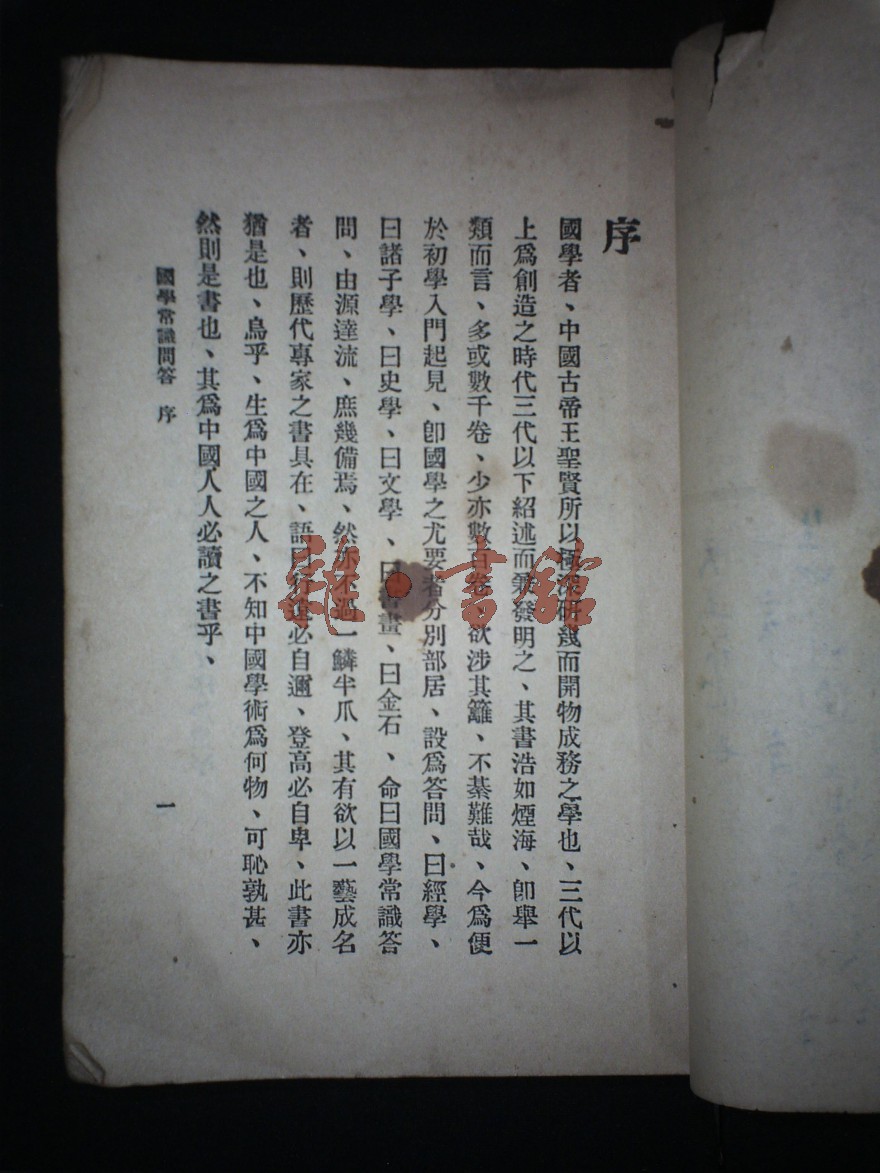 序
國學者、中國古帝王聖賢所以極深研幾而開物成務之學也、三代以
上爲創造之時代三代以下紹述而兼發明之、其書浩如煙海、卽舉一
類而言、多或數千卷、少亦數百卷、欲涉其籬、不綦難哉、今爲便
於初學入門起見、卽國學之尤要者分別部居、設爲答問、曰經學、
曰諸子學、曰史學、曰文學、曰書畫、曰金石、命曰國學常識答
問、由源達流、庶幾備焉、然亦不過一鱗半爪、其有欲以一藝成名
者、則歷代專家之書具在、語曰行遠必自邇、登高必自卑、此書亦
猶是也、烏乎、生爲中國之人、不知中國學術爲何物、可恥孰甚、
然則是書也、其爲中國人人必讀之書乎、
國學常識問答 序
一
雜·書館